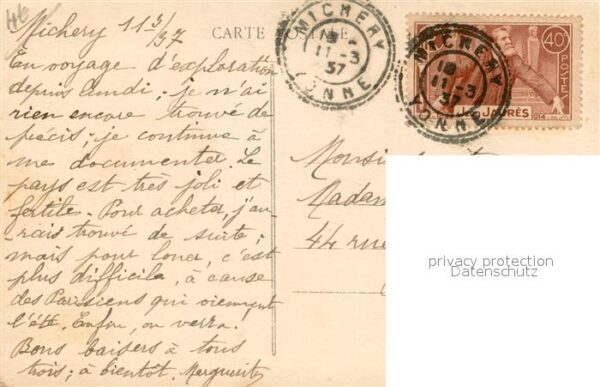 Michery 11 3/37
En voyage d'exploration
depuis lundi; je n'ai
rien encore trouvé de
précis; je continue à
me documenter. Le
pays est très joli et
fertile. Pour acheter, j'au-
-rais trouvé de suite;
mais pour louer, c'est
plus difficile, à cause
des Parisiens qui viennent
l'été. Enfin, on verra.
Bons baisers à tous
trois; à bientôt. Marguerite
CARTE
MICHERY
11-3
37
YONNE
MICHERY
18
11-3
37
YONNE
40c
POSTES
JEAN JAURÈS
1914
Monsi
Madam
44 rue
privacy protection
Datenschutz